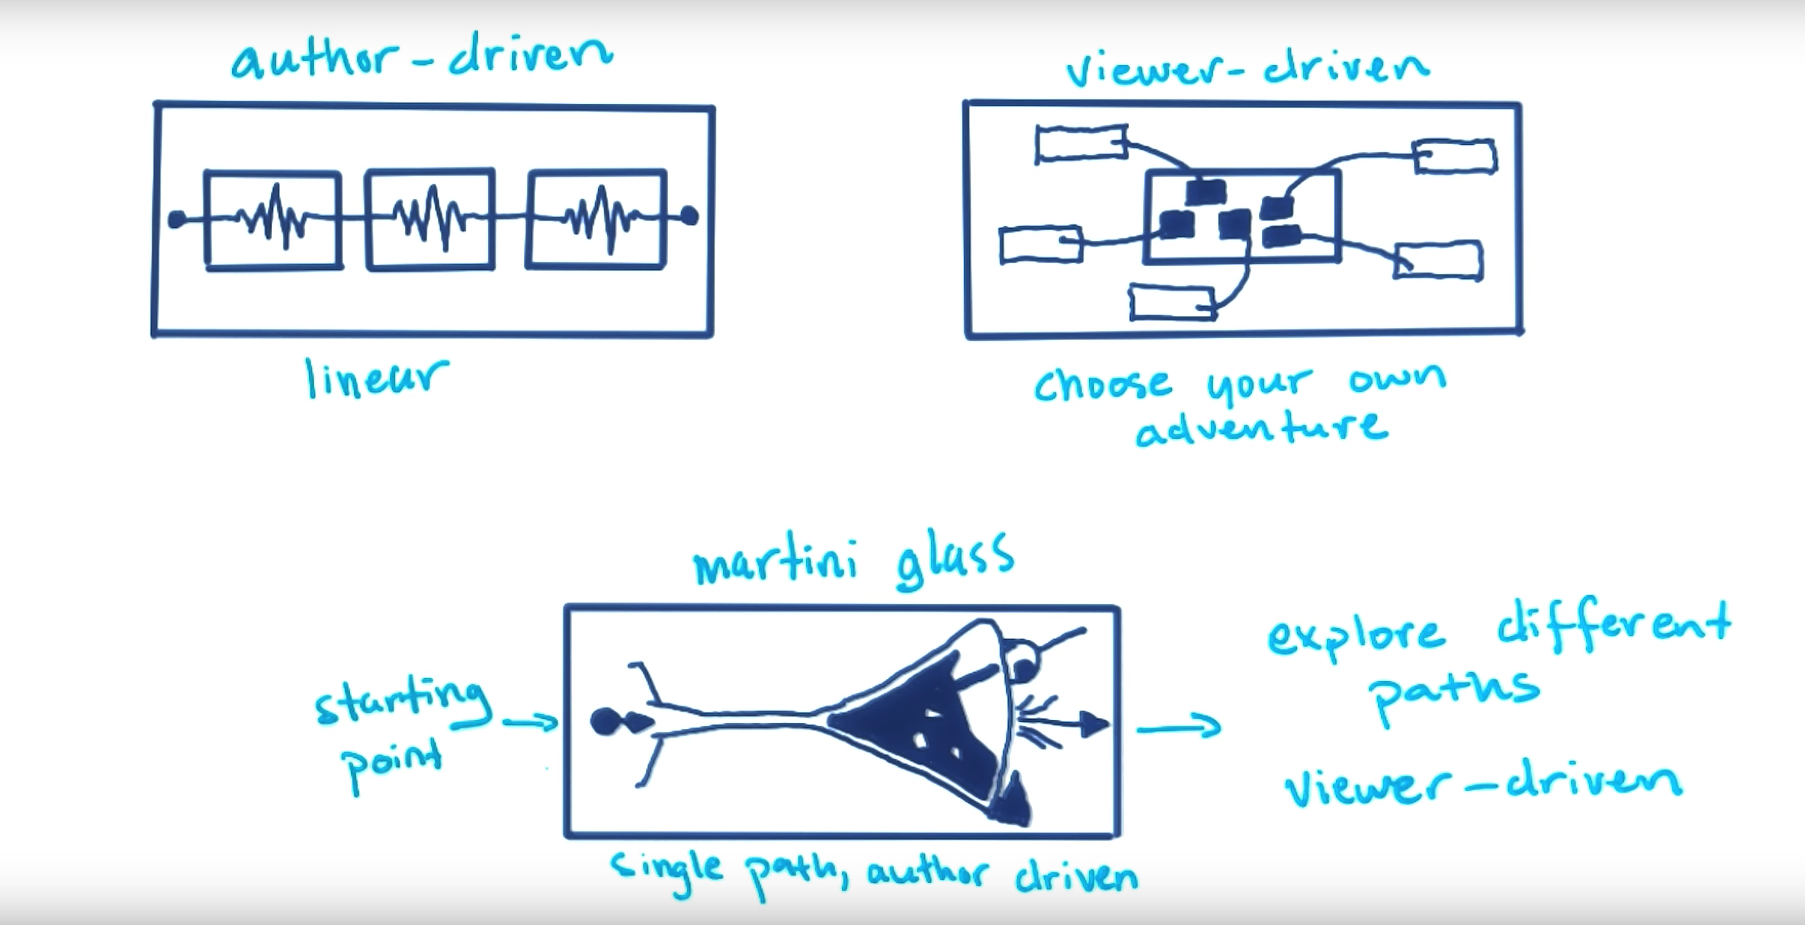 author-driven
linear
viewer-driven
choose your own
adventure
martini glass
starting
point
single path, author driven
explore different
paths
viewer-driven